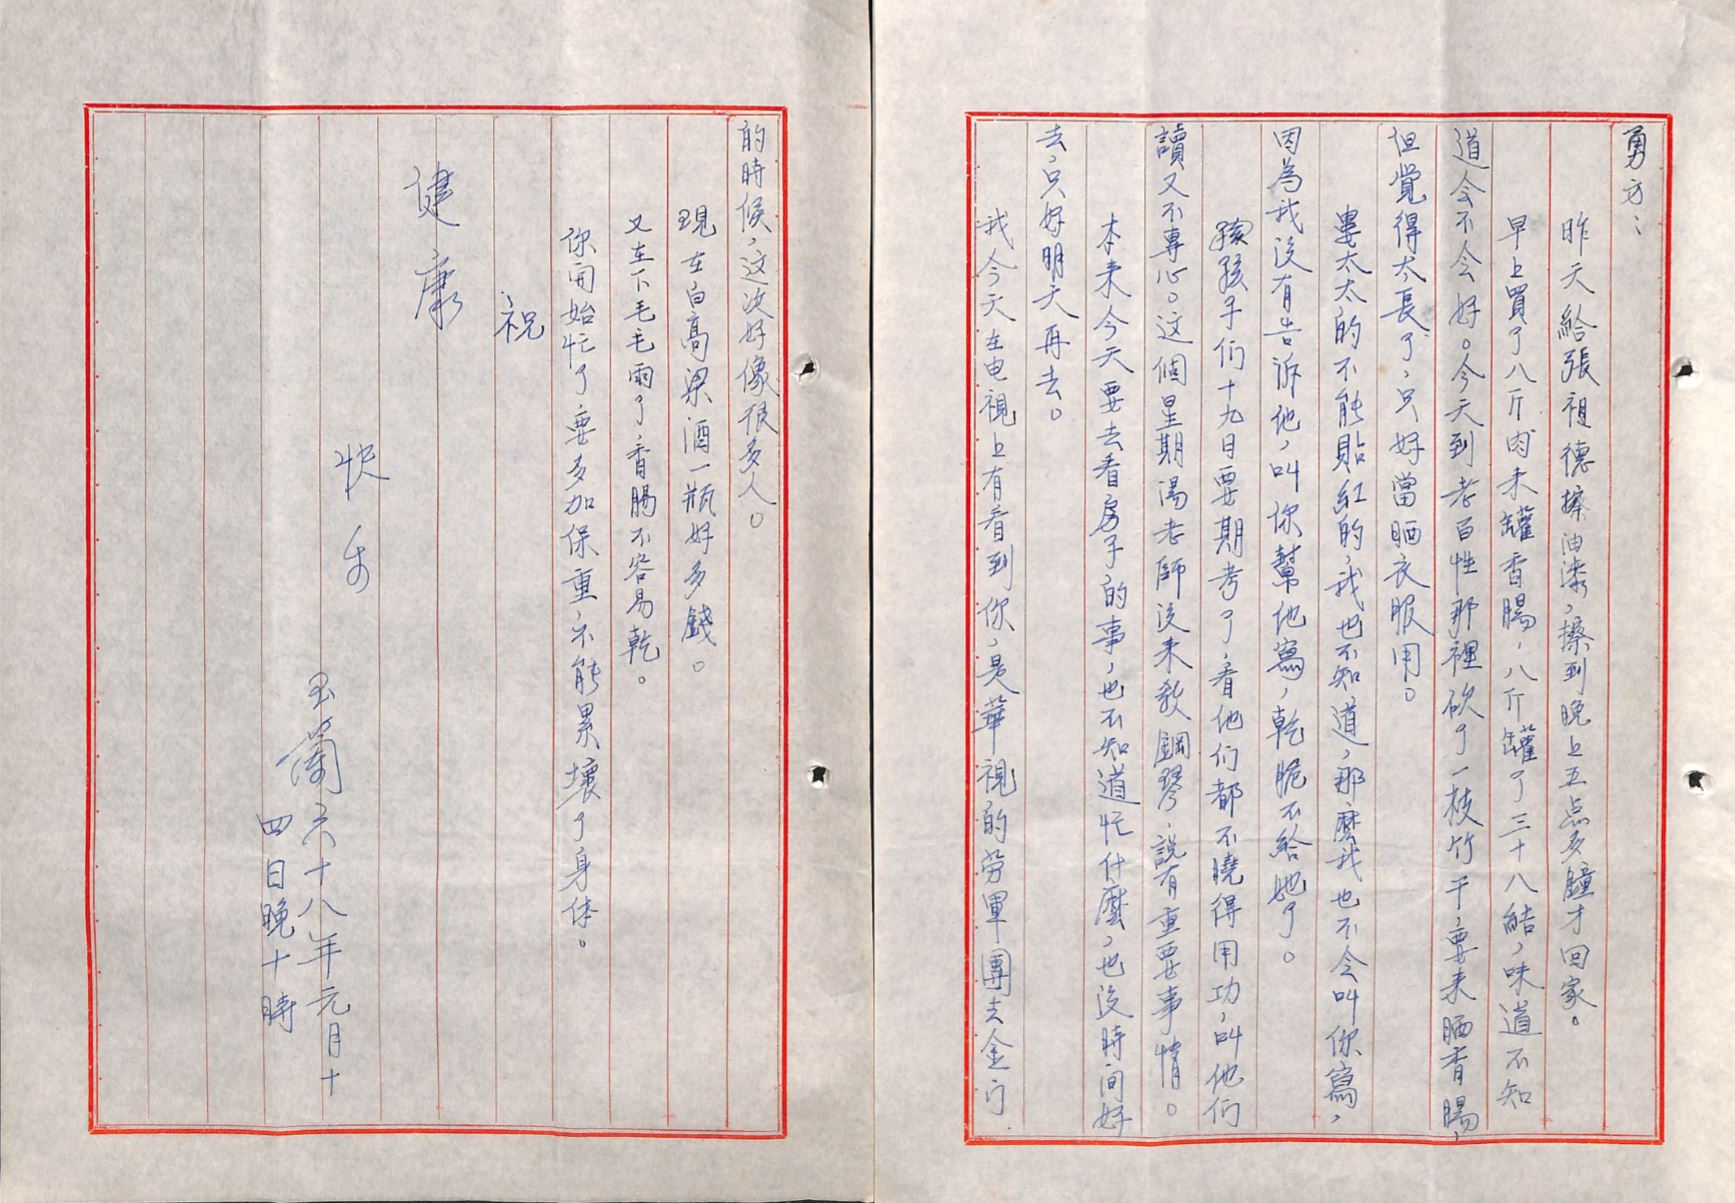 勇方：
昨天給張祖德擦油漆，擦到晚上五点多鐘才回家。
早上買了八斤肉来罐香腸，八斤罐了三十八結，味道不知
道会不会好。今天到老百性那裡砍了一枝竹干，要来晒香腸，
但覺得太長了，只好當晒衣服用。
婁太太的不能貼紅的，我也不知道，那麼我也不会叫你寫，
因為我没有告訴他，叫你幫他寫，乾脆不給她了。
孩子们十九日要期考了，看他们都不曉得用功，叫他们
讀又不專心。这個星期湯老師没来教鋼琴，説有重要事情。
本来今天要去看房子的事，也不知道忙什麼，也没時间好
去，只好明天再去。
我今天在电視上有看到你，是華視的劳軍團去金门
的時候，这次好像很多人。
現在白高梁酒一瓶好多錢。
又在下毛毛雨了，香腸不容易乾。
你開始忙了要多加保重，不能累壞了身体。
祝
健康
快乐
玉蘭六十八年元月十
四日晚十時